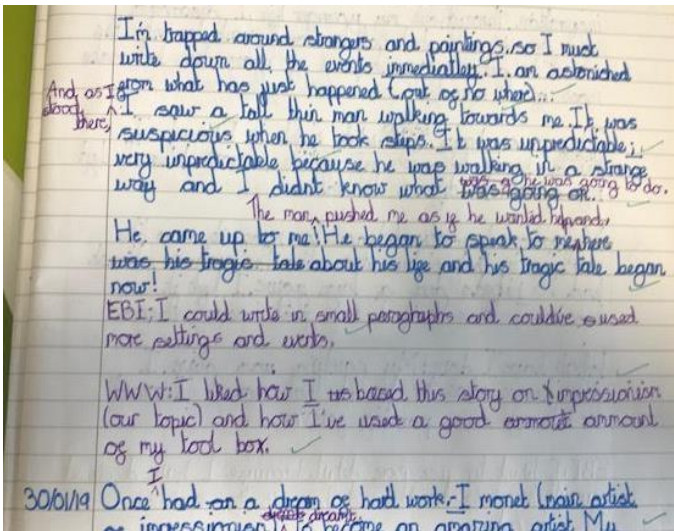 I'm trapped around strangers and paintings. so I must
write down all the events immediatley. I am astonished
from what has just happened (out of no where)...
And, as I stood there,
I saw a tall thin man walking towards me. It was
suspicious when he took steps. It was unpredictable;
very unpredictable because he was walking in a strange
way and I didnt know what was going on. he was going to do.
The man, pushed me as if he wanted
He, came up to me! He began to speak to me
was his tragic tale about his life and his tragic tale began
now!
EBI: I could write in small paragraphs and couldive used
more settings and events.
WWW: I liked how I based this story on impressionism
(our topic) and how I've used a good ammount ammount
of my tool box.
I
30/01/19 Once had an a dream of hard work. I monet (main artist
of impressionism) to become an amazing artist. My